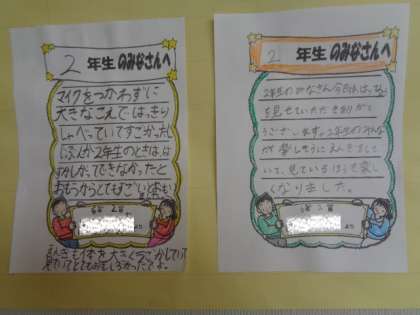 2 年生 のみなさんへ
マイクをつかわずに
大きなこえではっきり
しゃべっていてすごかったし
じぶんが2年生のときは、は
ずかしかってできなかったと
おもうからとてもすごいとおも
年 2 組
より
見ていてとてもおもしろかったでよ。
2 年生 のみなさんへ
2年生のみなさん今日は、はっぴょう
を見せていただきありがと
うございます。2年生のみんな
が楽しそうにえんぎをして
いて、見ているほうも楽し
くなりました。
年 3 組
より